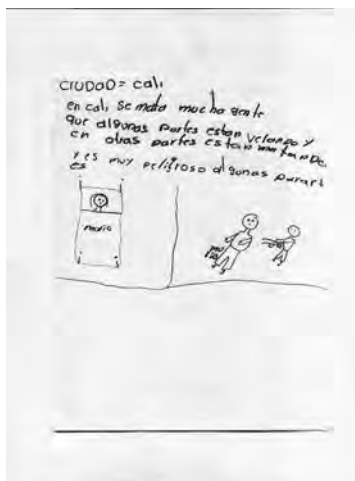 CIUDAD= cali
en cali se mata mucha gente
que algunas partes estan velando y
en otras partes estan matando.
y es muy peligroso algunas
es
murio